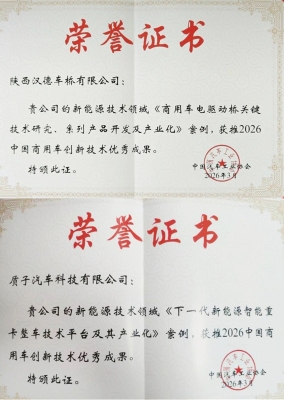 荣誉证书
陕西汉德车桥有限公司：
贵公司的新能源技术领域《商用车电驱动桥关键
技术研究、系列产品开发及产业化》案例，获推2026
中国商用车创新技术优秀成果。
特颁此证。
中国汽车工业协会
2026年3月
荣誉证书
质子汽车科技有限公司：
贵公司的新能源技术领域《下一代新能源智能重
卡整车技术平台及其产业化》案例，获推2026中国商
用车创新技术优秀成果。
特颁此证。
中国汽车工业协会
2026年3月